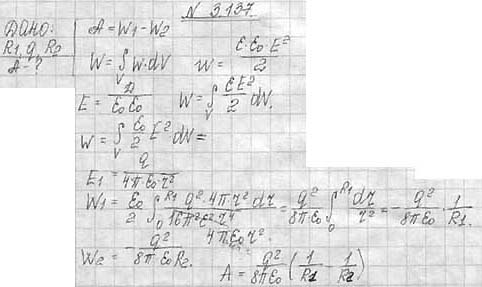 N 3.137
ДАНО:
R1, q, R2
A - ?
A = W1 - W2
W = ∫V w·dV   w = ε·ε0 E²/2
E = D/ε0ε0   W = ∫V εE²/2 dV
W = ∫V ε0/2 E² dV =
E1 = q/4πε0 r²
W1 = ε0/2 ∫0^R1 q²·4π r² dr/16π²ε² r⁴ = q²/8πε0 ∫0^R1 dr/r² = - q²/8πε0 · 1/R1.
4πε0 r².
W2 = - q²/8πε0R2.
A = q²/8πε0 (1/R1 - 1/R2)